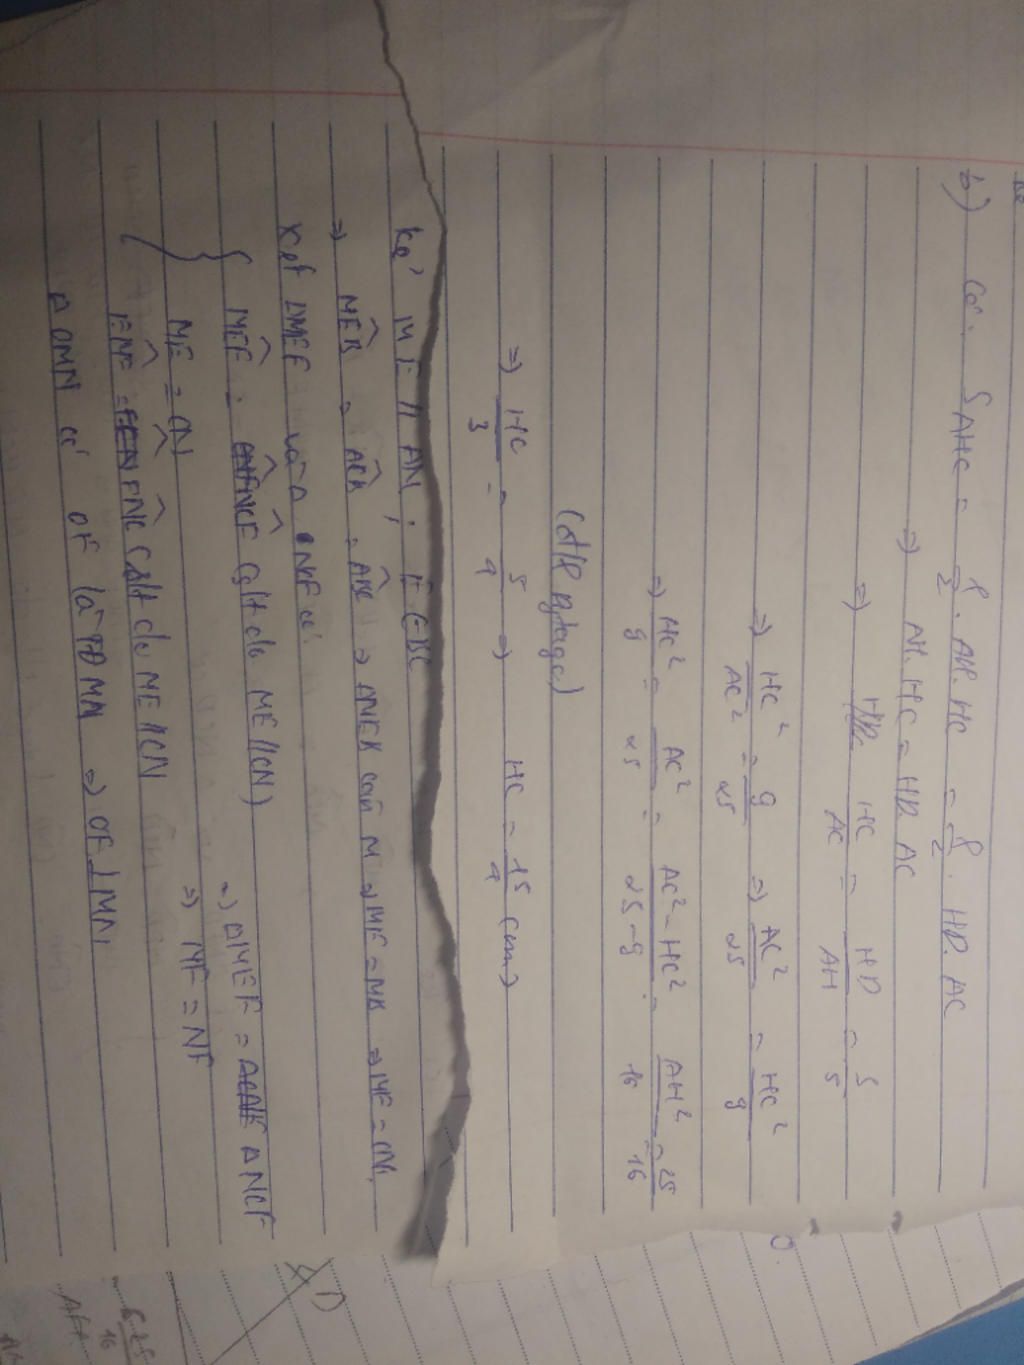 b) Có: S AHC = 1/2 . AH. HC = 1/2 . HD. AC
=> AH. HC = HD. AC
=> HC/AC = HD/AH = 3/5
=> HC²/AC² = 9/25 => AC²/25 = HC²/9
=> HC²/9 = AC²/25 = AC² - HC²/25 - 9 = AH²/16 = 25/16
(đ/l Pytago)
=> HC/3 = 5/4 => HC = 15/4 (cm)
Kẻ ME // AN ; E ∈ BC
=> MEB = ACB = ABC => ΔMEB cân M => ME = MB => ME = CN.
Xét ΔMEF và Δ NCF có:
MEF = NCF (slt do ME // CN)
=> ΔMEF = ΔNCF
ME = CN
=> MF = NF
EMF = FNC (slt do ME // CN
Δ OMN có OF là MN => OF ⊥ MN